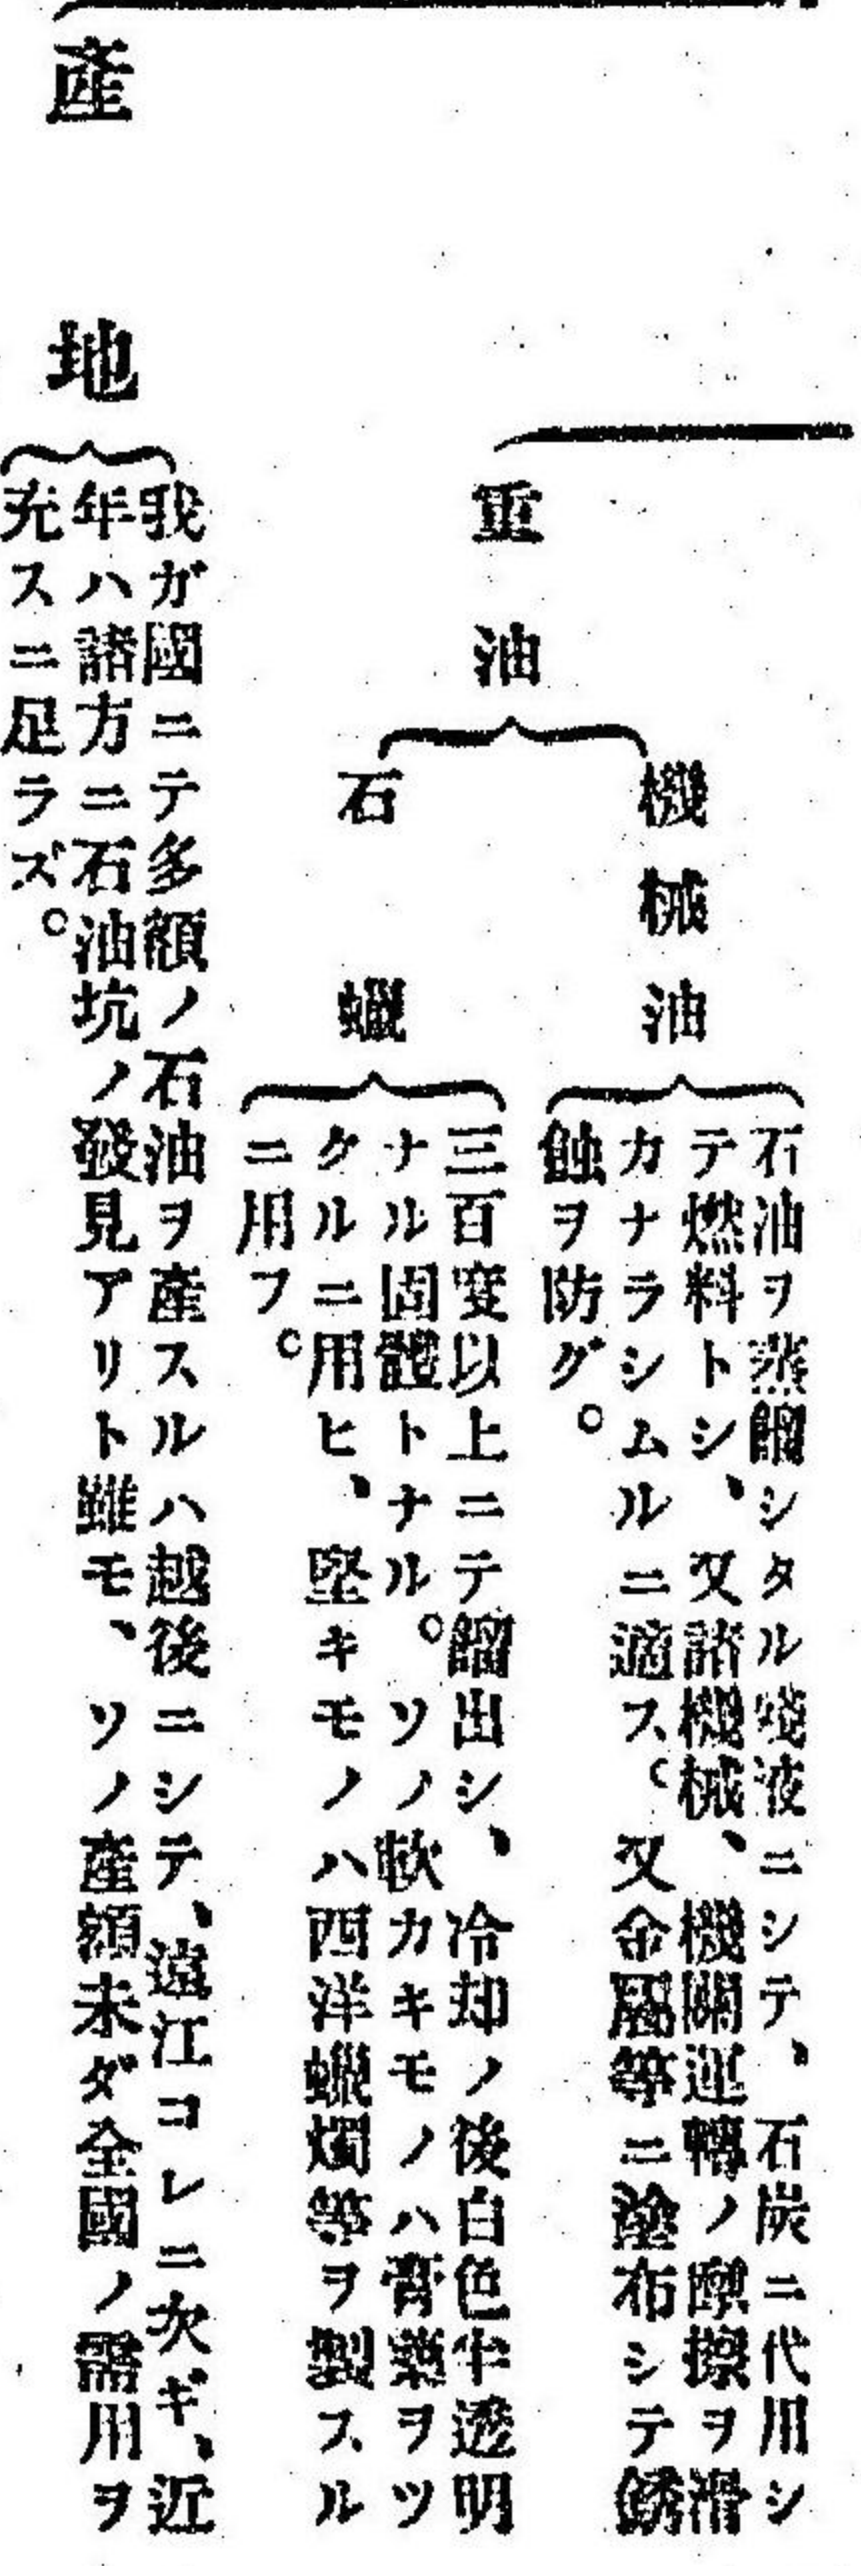 重油
機械油
石油ヲ蒸餾シタル殘液ニシテ、石炭ニ代用シ
テ燃料トシ、又諸機械、機關運轉ノ摩擦ヲ滑
カナラシムルニ適ス。又金屬等ニ塗布シテ銹
蝕ヲ防グ。
石蠟
三百度以上ニテ餾出シ、冷却ノ後白色半透明
ナル固體トナル。ソノ軟カキモノハ膏藥ヲツ
クルニ用ヒ、堅キモノハ西洋蠟燭等ヲ製スル
ニ用フ。
產地
我ガ國ニテ多額ノ石油ヲ產スルハ越後ニシテ、遠江コレニ次ギ、近
年ハ諸方ニ石油坑ノ發見アリト雖モ、ソノ產額未ダ全國ノ需用ヲ
充スニ足ラズ。